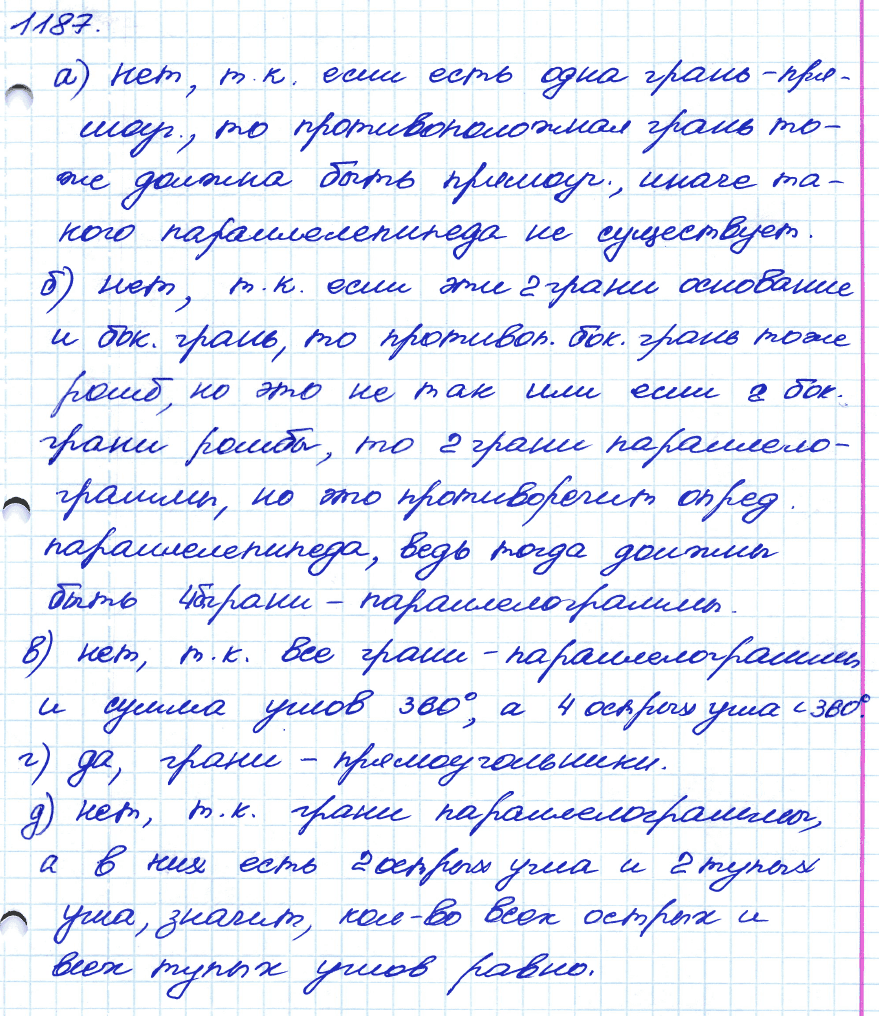 1187.
а) нет, т.к. если есть одна грань - пря-
моуг., то противоположная грань то-
же должна быть прямоуг., иначе та-
кого параллелепипеда не существует.
б) нет, т.к. если эти 2 грани основание
и бок. грань, то противоп. бок. грань тоже
ромб, но это не так или если 2 бок.
грани ромбы, то 2 грани параллело-
граммы, но это противоречит опред.
параллелепипеда, ведь тогда должны
быть 4 грани - параллелограммы.
в) нет, т.к. все грани - параллелограммы
и сумма углов 360°, а 4 острых угла < 360°.
г) да, грани - прямоугольники.
д) нет, т.к. грани параллелограммы,
а в них есть 2 острых угла и 2 тупых
угла, значит, кол-во всех острых и
всех тупых углов равно.